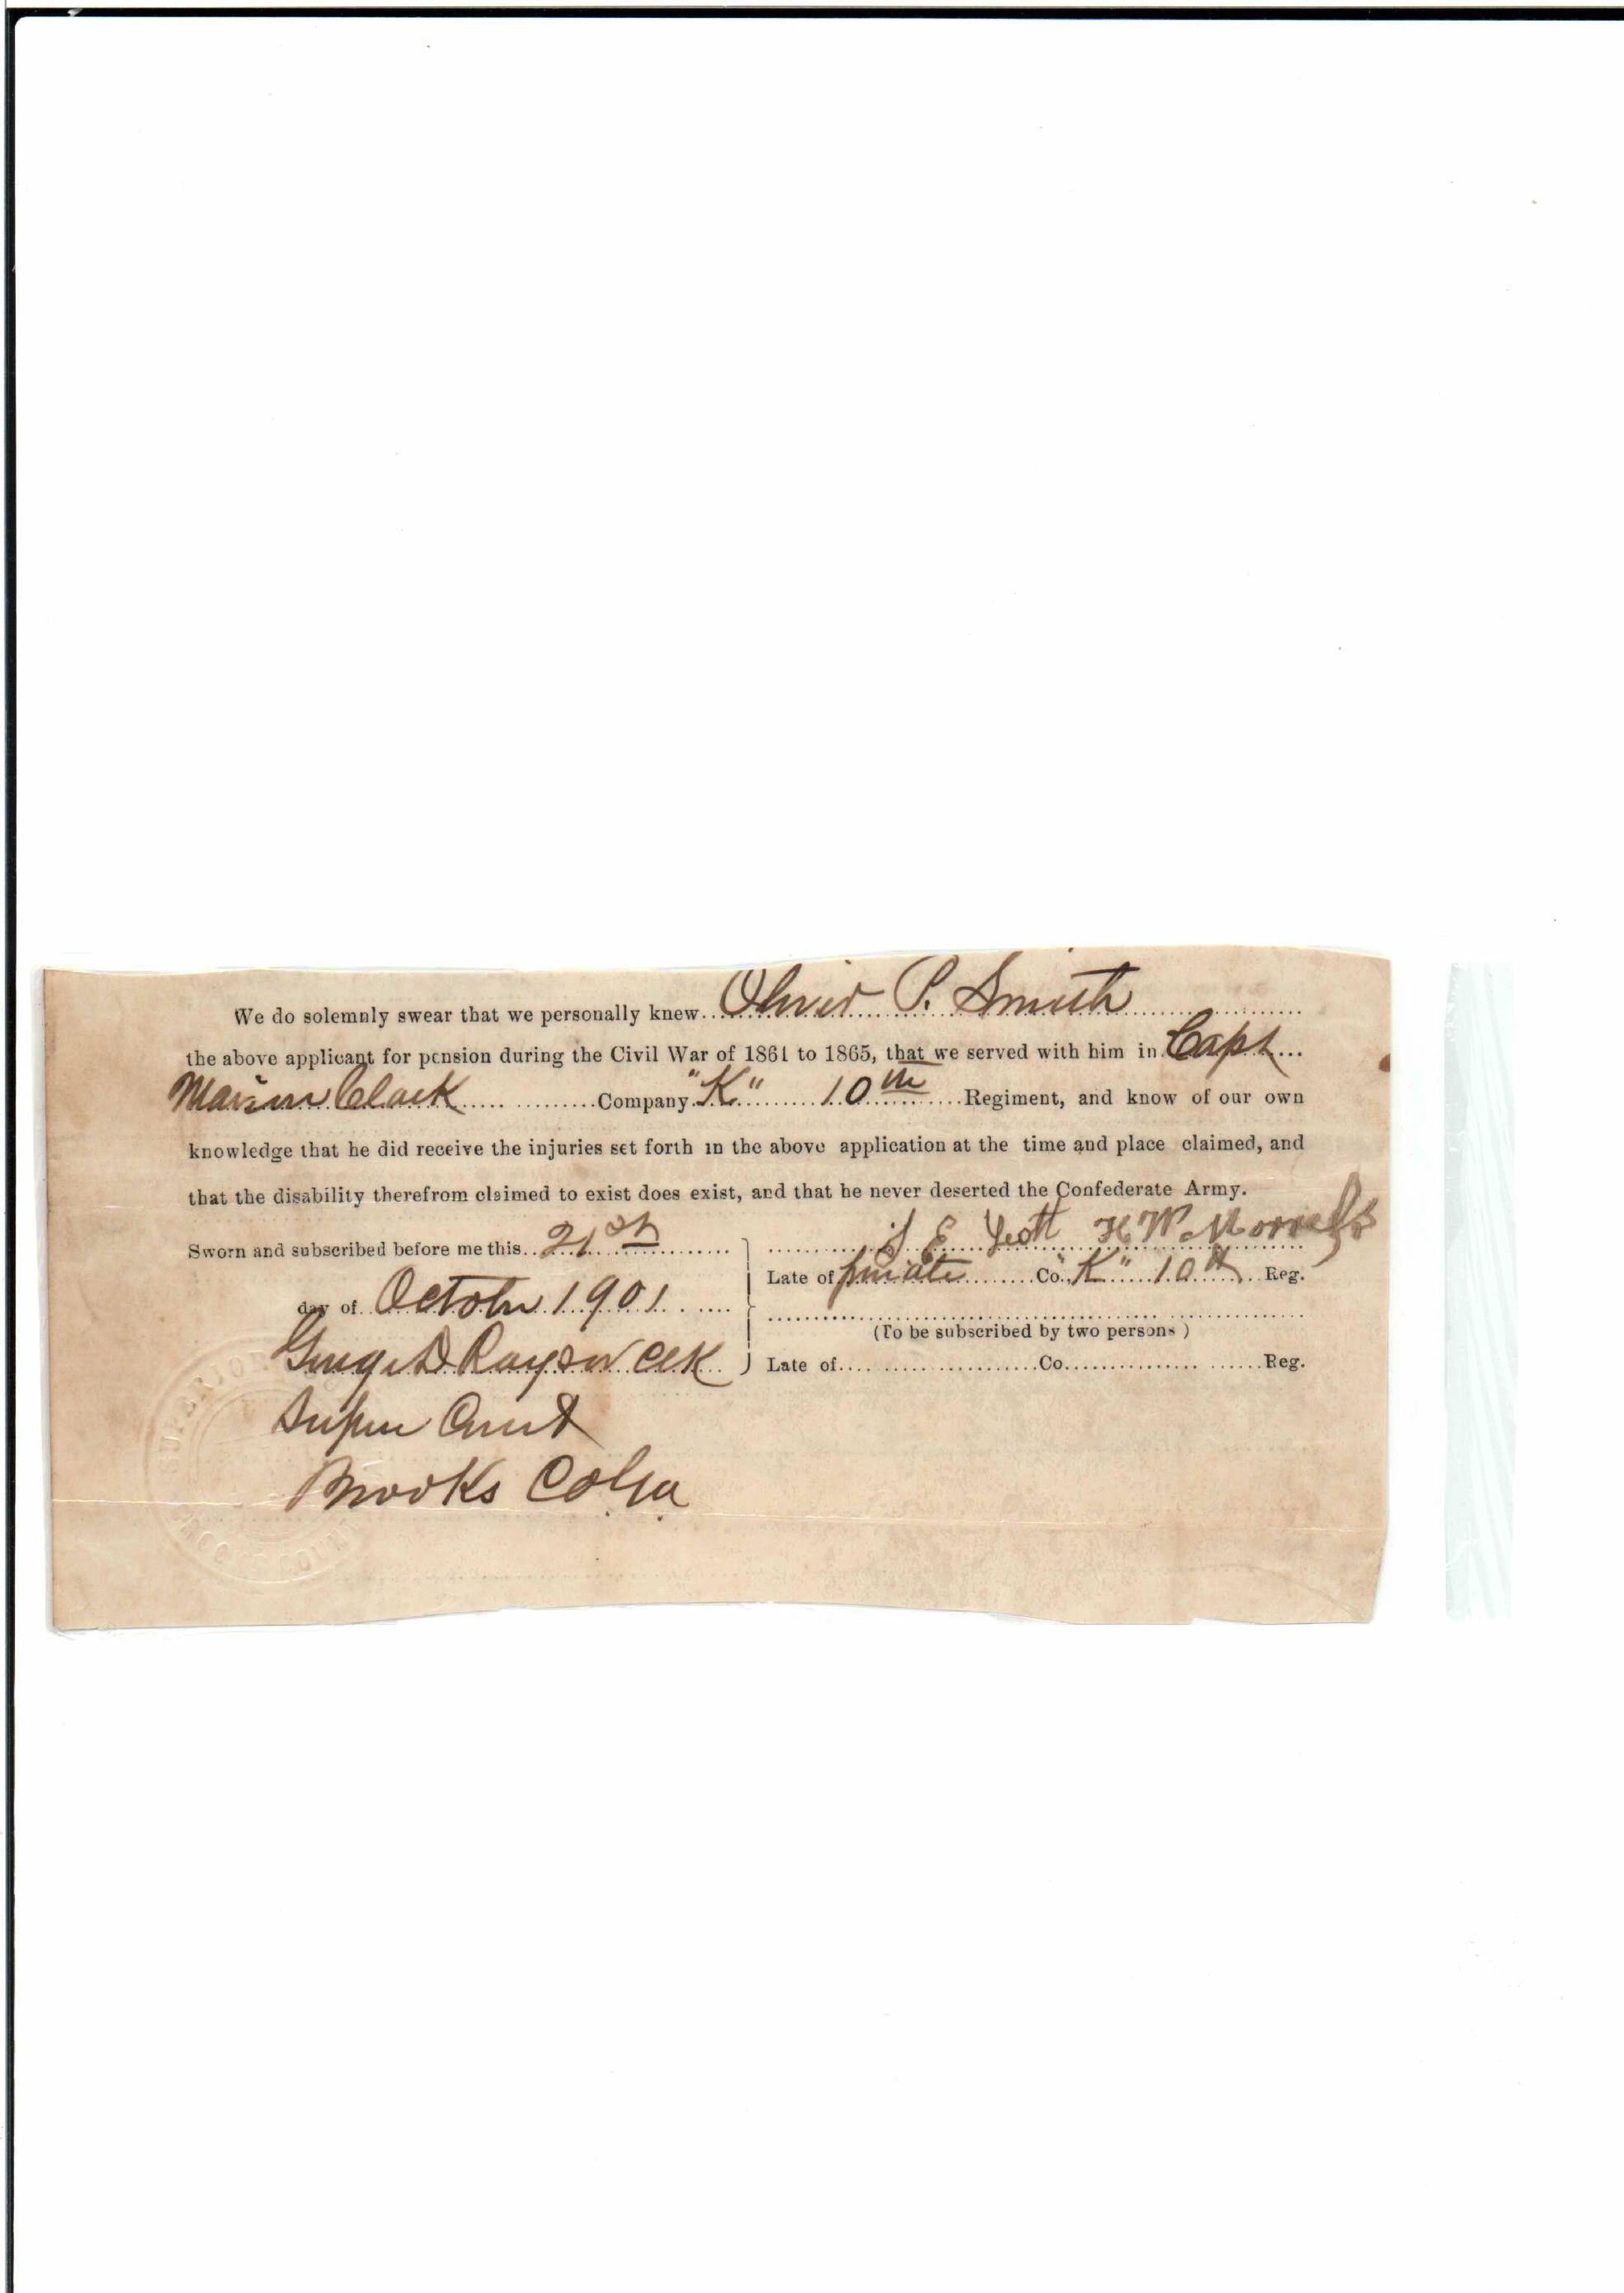 We do solemnly swear that we personally knew Oliver P. Smith
the above applicant for pension during the Civil War of 1861 to 1865, that we served with him in Capt
Clark Company "K" 10th Regiment, and know of our own
knowledge that he did receive the injuries set forth in the above application at the time and place claimed, and
that the disability therefrom claimed to exist does exist, and that he never deserted the Confederate Army.
J E H W
Sworn and subscribed before me this 21st
Late of private Co. "K" 10th Reg.
day of October 1901
(To be subscribed by two persons)
George D Raysor Clk
Late of Co Reg.
Super Court
Brooks Co Ga